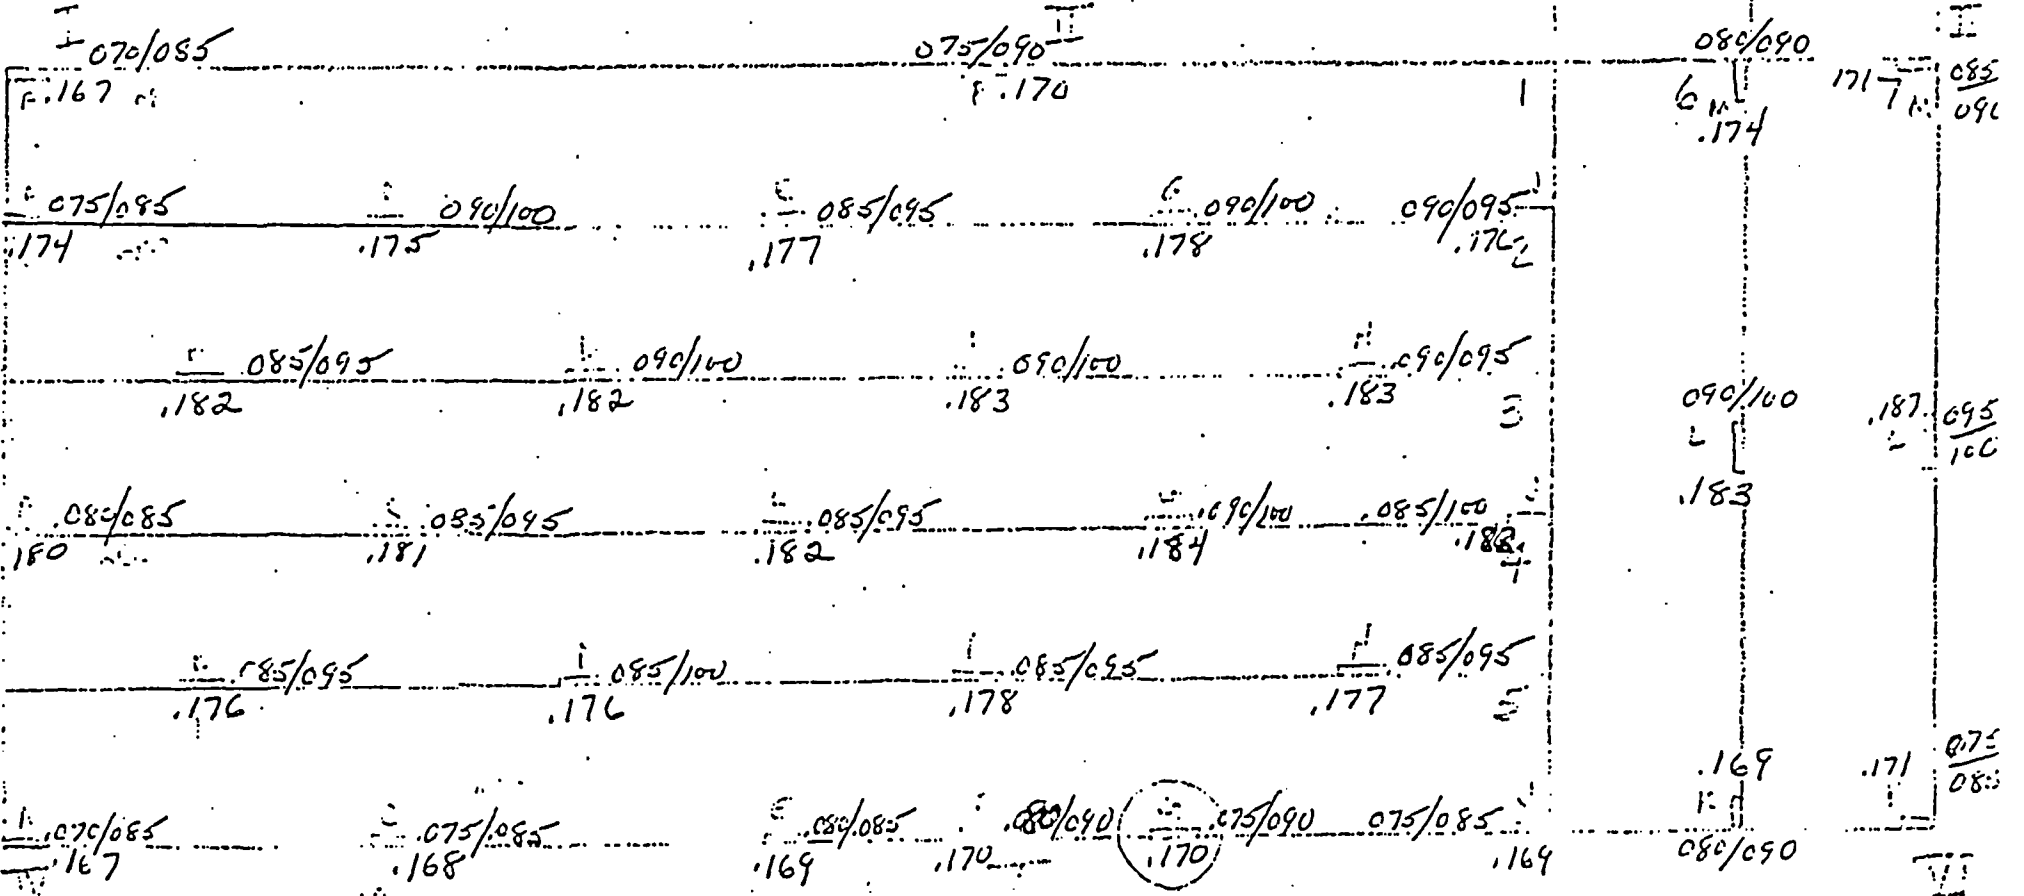 I II II
070/085 075/090 080/090 085
.167 .170 1 6 .174 171 090
075/085 090/100 085/095 090/100 090/095
.174 .175 .177 .178 .176 2
085/095 090/100 090/100 090/095
.182 .182 .183 .183 3
090/100 .187 095
L .183 L 100
080/085 085/095 085/095 090/100 .085/100
.180 .181 .182 .184 4
085/095 085/100 085/095 085/095
.176 .176 .178 .177 5
.169 .171 075
070/085 .075/.085 080/085 080/090 075/090 075/085
.167 .168 .169 .170 .170 .169 080/090
VI